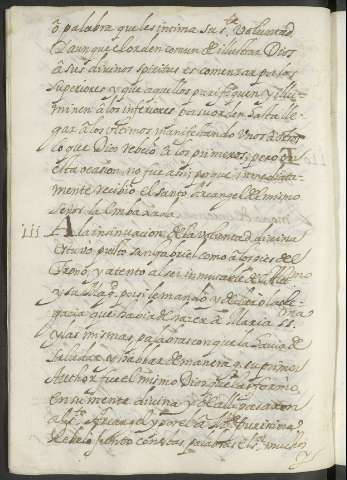 ó palabra que les intima su s.ta Voluntad
Y aunque el orden comun de illustrar Dios
à sus divinos spiritus es comenzar por los
superiores y que aquellos purifiquen y illu
minen à los inferiores por su orden hasta lle
gar à los ultimos manifestando unos à otros
lo que Dios rebeló à los primeros; pero en
esta ocasion no fue assi; porque inmediata
mente recibió el santo Arcangel del mismo
Señor la Embaxada.
111 A la insinuacion de la voluntad divina
estuvo presto san Gabriel como à los pies del
Trono, y atento al ser inmutable de el Altissimo
y su Mag.d por si le mandó y declaró la le
gacia que havia de hazer à Maria SS.
y las mismas palabras con que la havia de
saludar y hablar de manera q. su primer
Author fue el mismo Dios que las formó
en su mente divina y de alli passaron
al s.to Arcangel y por el à Maria Purissima
Rebeló junto con estas palabras el S.or muchos